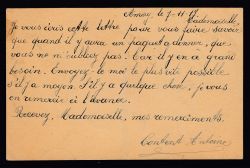 Amay le 7-11-17
Mademoiselle,
Je vous écris cette lettre pour vous faire savoir
que quand il y aura un paquet a donner, que
vous ne m'oubliez pas. Car il y en a grand
besoin. Envoyez-le moi le plus vite possible
s'il y a moyen. S'il y a quelque chose, je vous
en remercie à l'avance.
Recevez, Mademoiselle, mes remerciments.
Content Antoine